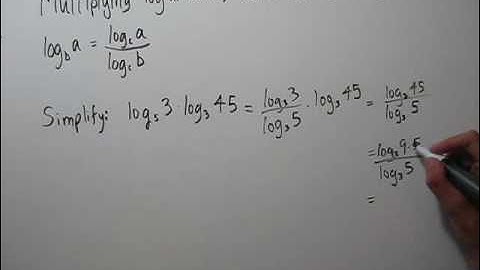 Multiplying
log_b a = log_c a / log_c b
Simplify: log_5 3 · log_3 45 = log_3 3 / log_3 5 · log_3 45 = log_3 45 / log_3 5
= log_3 9·5 / log_3 5
=